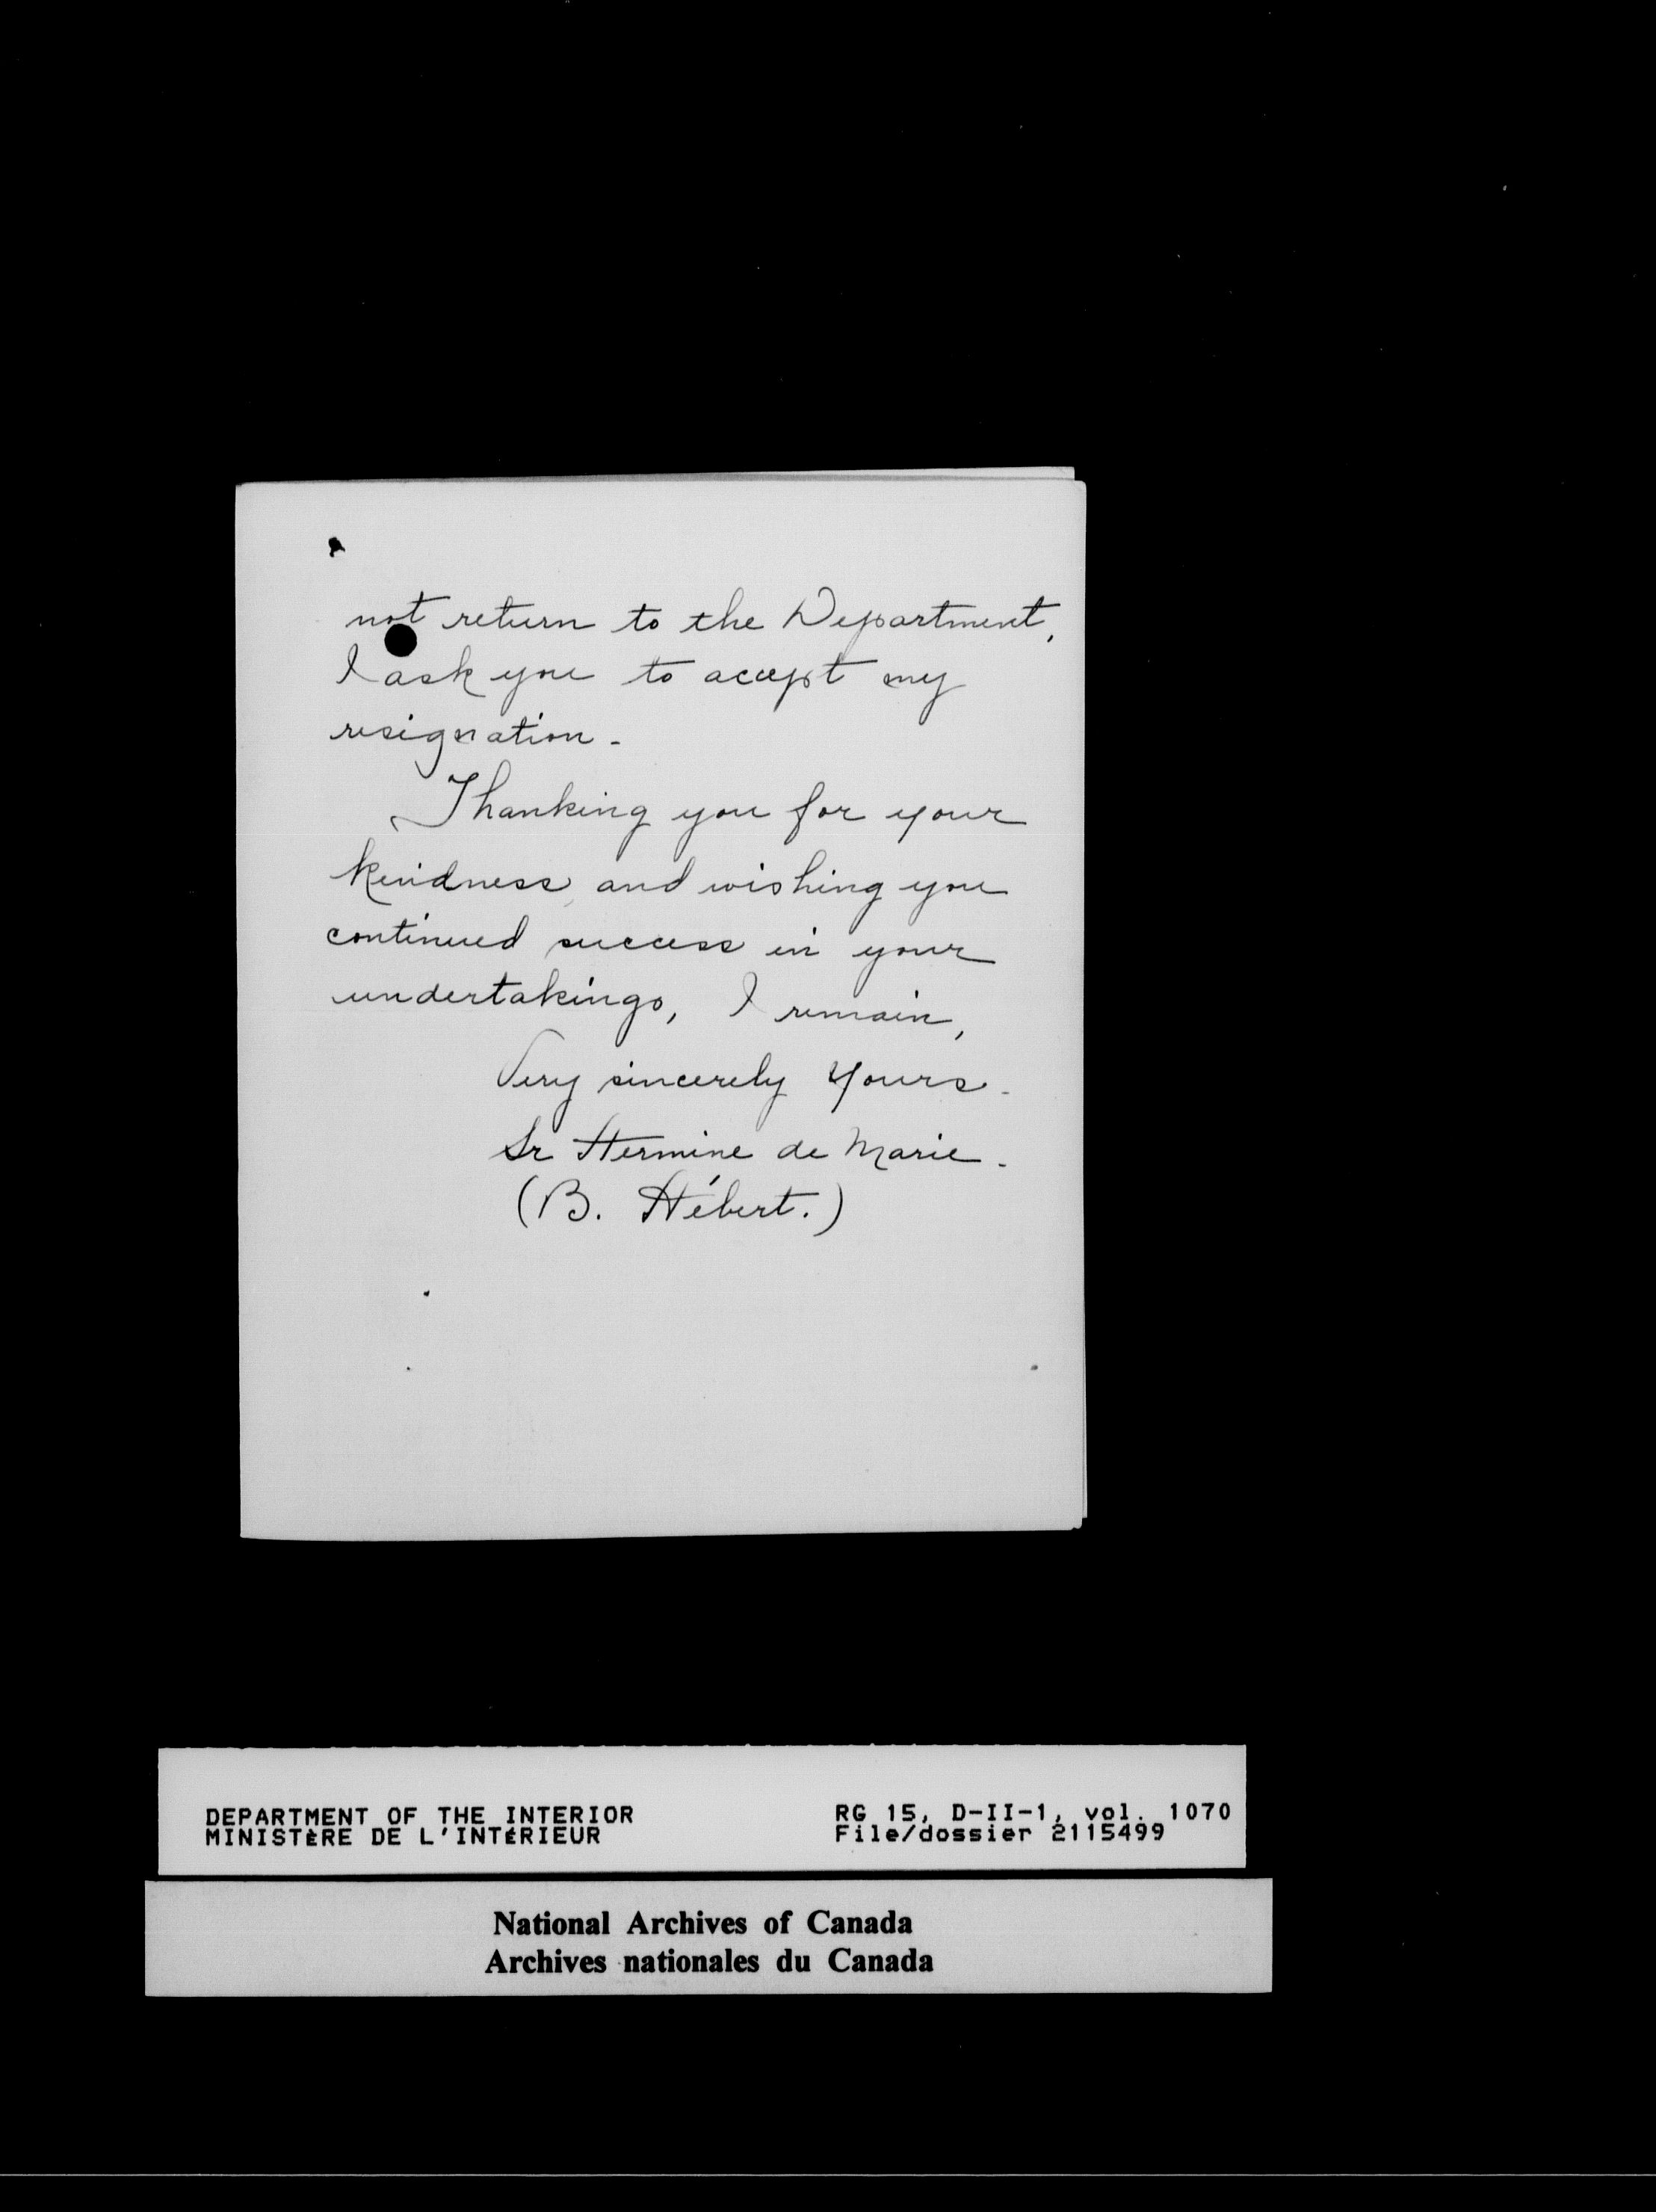 not return to the Department,
I ask you to accept my
resignation -
Thanking you for your
kindness, and wishing you
continued success in your
undertakings, I remain,
Very sincerely Yours -
Sr Hermine de Marie -
(B. Hébert.)
DEPARTMENT OF THE INTERIOR
MINISTÈRE DE L'INTÉRIEUR
RG 15, D-II-1, vol. 1070
File/dossier 2115499
National Archives of Canada
Archives nationales du Canada